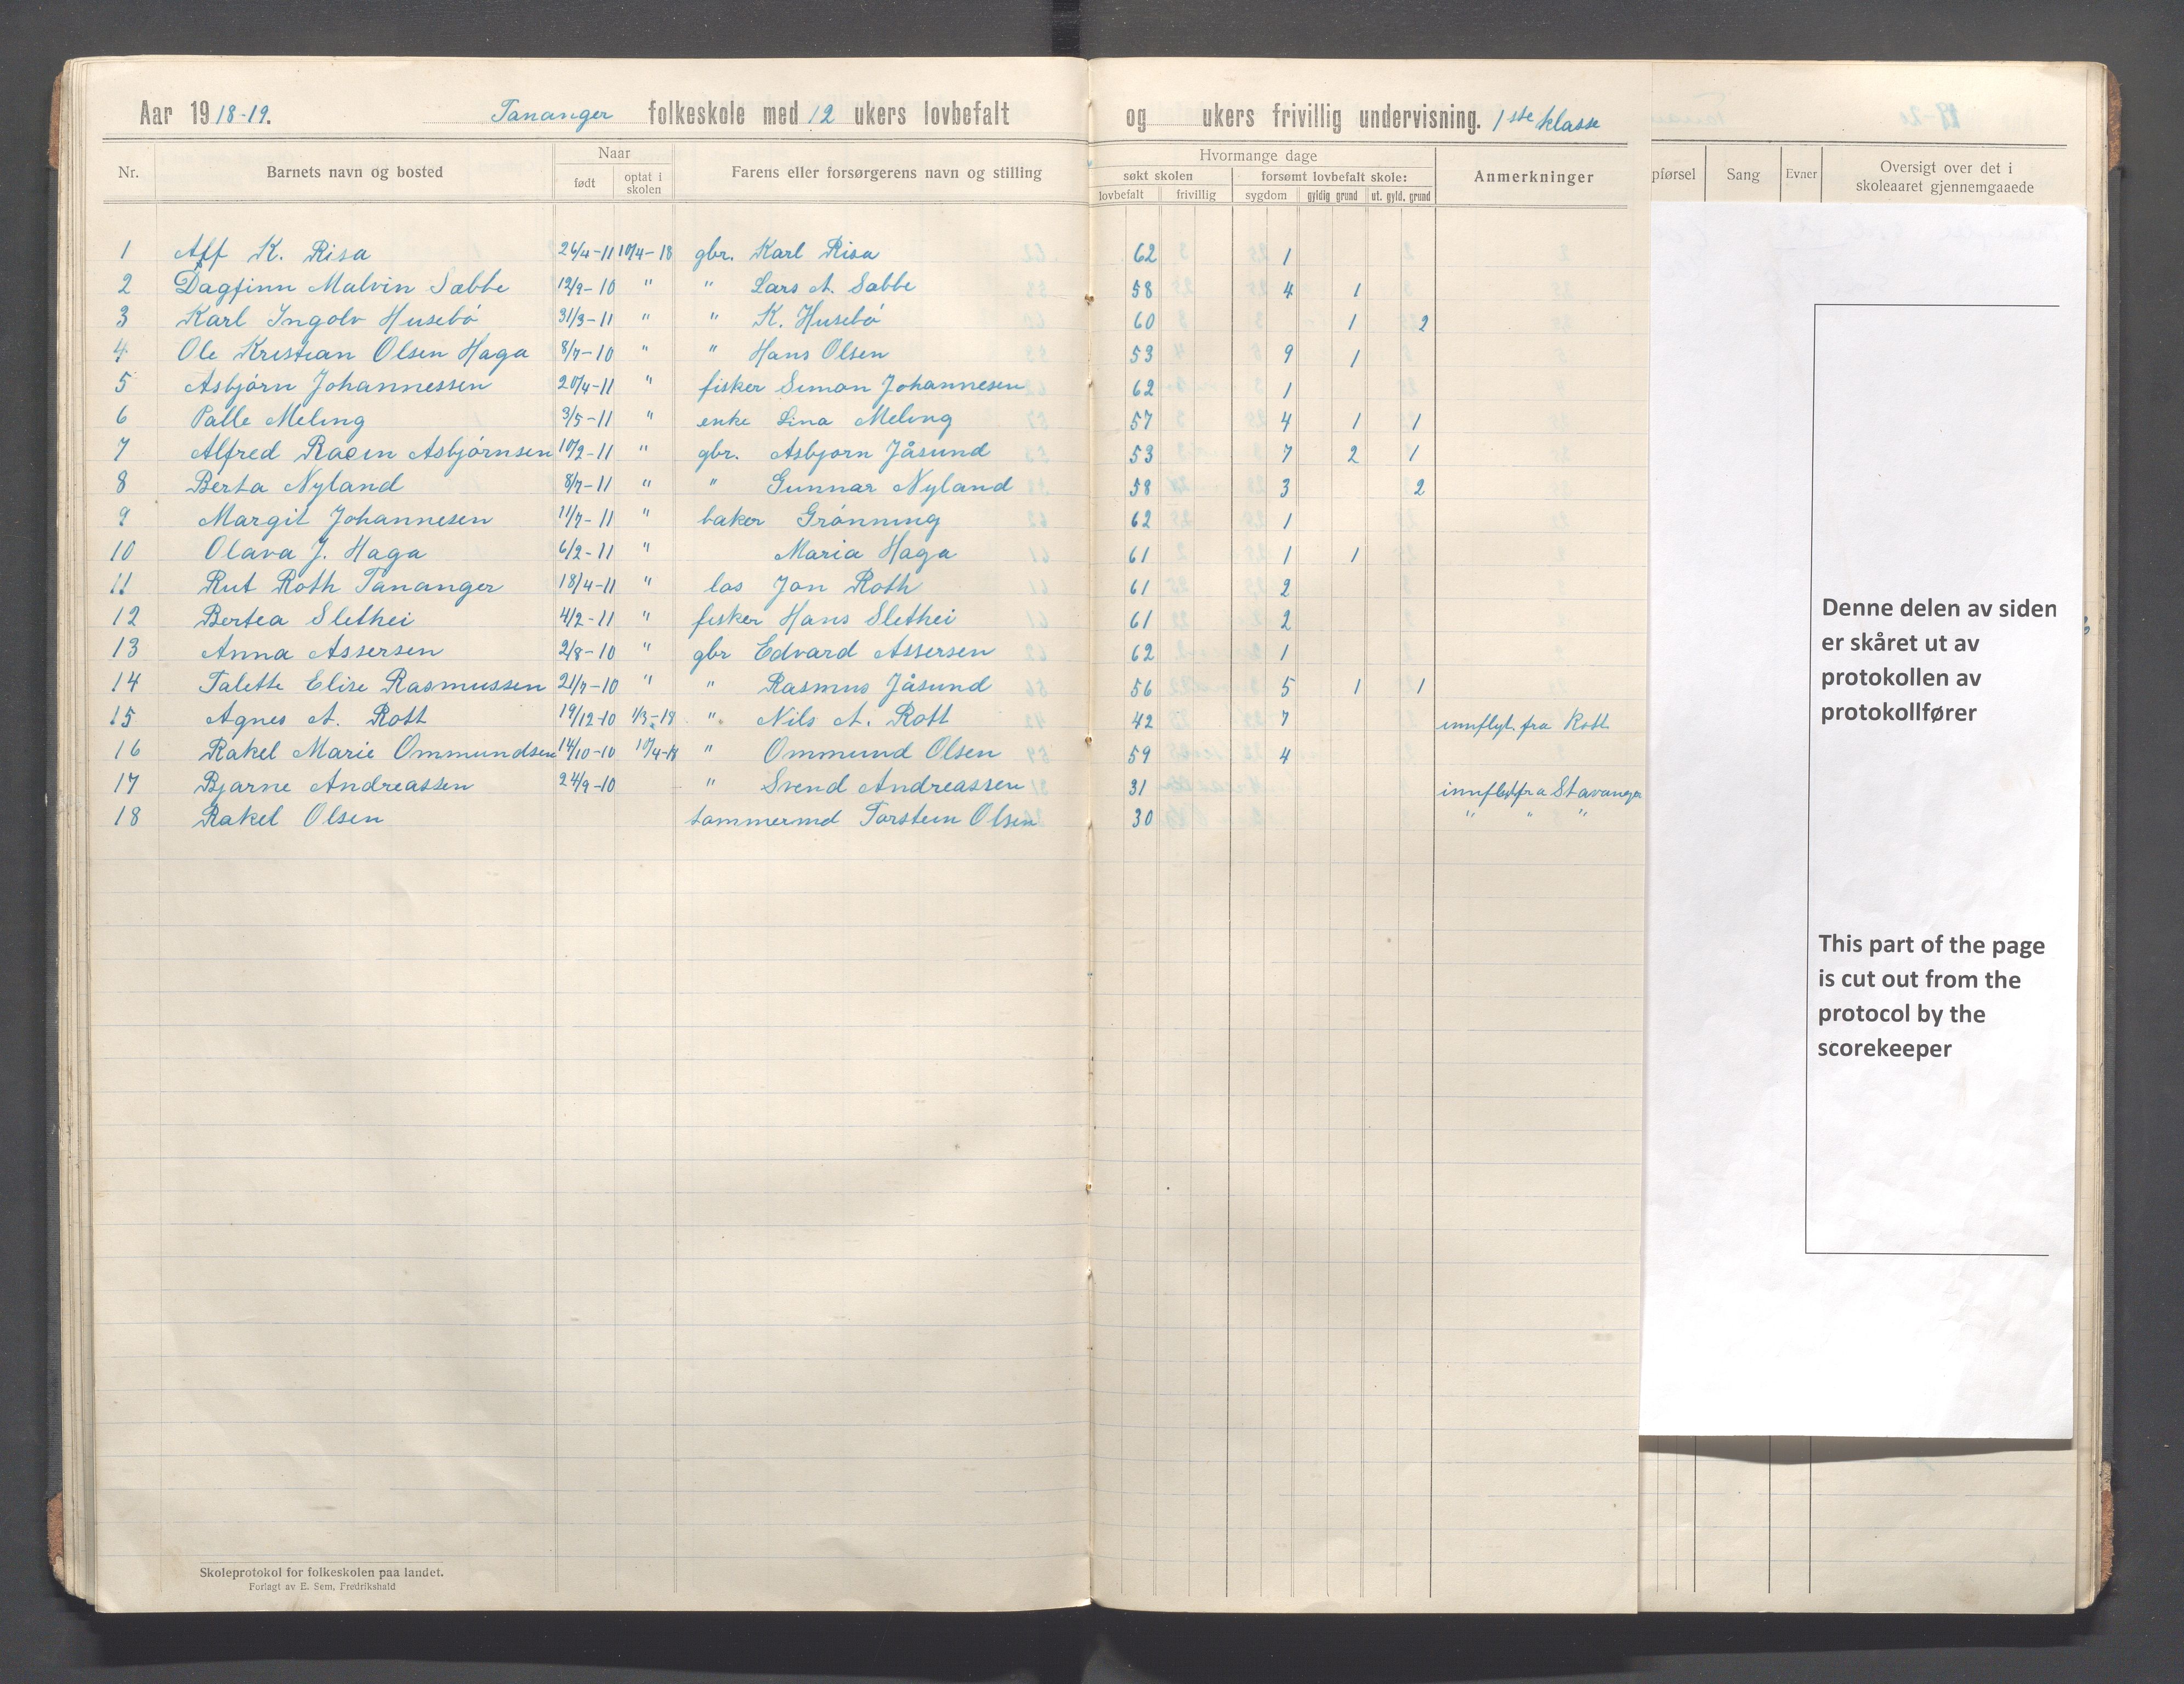 Aar 1918-19. Tananger folkeskole med 12 ukers lovbefalt og ukers frivillig undervisning. 1ste klasse
Nr. Barnets navn og bosted Naar født optat i skolen Farens eller forsørgerens navn og stilling Hvormange dage søkt skolen lovbefalt frivillig forsømt lovbefalt skole: sygdom gyldig grund ut. gyld. grund Anmerkninger
pførsel Sang Evner Oversigt over det i skoleaaret gjennemgaaede
1 Alf K. Risa 26/4-11 10/4-18 gbr. Karl Risa 62 1
2 Dagfinn Malvin Sæbbe 12/9-10 " " Lars A. Sæbbe 58 4 1
3 Karl Ingolv Husebö 31/3-11 " " K. Husebö 60 1 2
4 Ole Kristian Olsen Haga 8/7-10 " " Hans Olsen 53 9 1
5 Asbjörn Johannessen 20/4-11 " fisker Simon Johannesen 62 1
6 Palle Meling 3/5-11 " enke Lina Meling 57 4 1 1
7 Alfred Asbjørnsen 10/2-11 " gbr. Asbjorn Jåsund 53 7 2 1
8 Berta Nyland 8/7-11 " " Gunnar Nyland 58 3 2
9 Margit Johannesen 11/7-11 " baker Grönning 62 1
10 Olava J. Haga 6/2-11 " Maria Haga 61 1 1
11 Rut Roth Tananger 18/4-11 " los Jon Roth 61 2
12 Bertea Slethei 4/2-11 " fisker Hans Slethei 61 2
13 Anna Assersen 2/8-10 " gbr Edvard Assersen 62 1
14 Talette Elise Rasmussen 21/7-10 " " Rasmus Jåsund 56 5 1 1
15 Agnes A. Rott 19/12-10 " Nils A. Rott 42 7 innflyt. fra Rott
16 Rakel Marie Ommundsen 14/10-10 10/4-18 " Ommund Olsen 59 4
17 Bjarne Andreassen 24/9-10 " Svend Andreassen 31 fra Stavanger
18 Rakel Olsen tømmermd Torstein Olsen 30 " " "
Denne delen av siden
er skåret ut av
protokollen av
protokollfører
This part of the page
is cut out from the
protocol by the
scorekeeper
Skoleprotokol for folkeskolen paa landet.
Forlagt av E. Sem, Fredrikshald